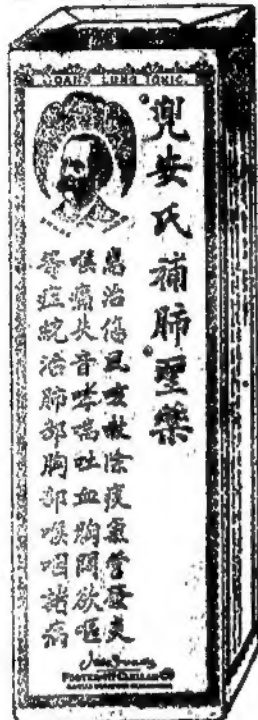 DOANS LUNG TONIC
兜安氏補肺聖藥
專治傷風咳嗽除痰氣管發炎
喉痛失音哮喘吐血胸悶欲嘔
等症統治肺部胸部喉咽諸病
FOSTER-McCLELLAN CO